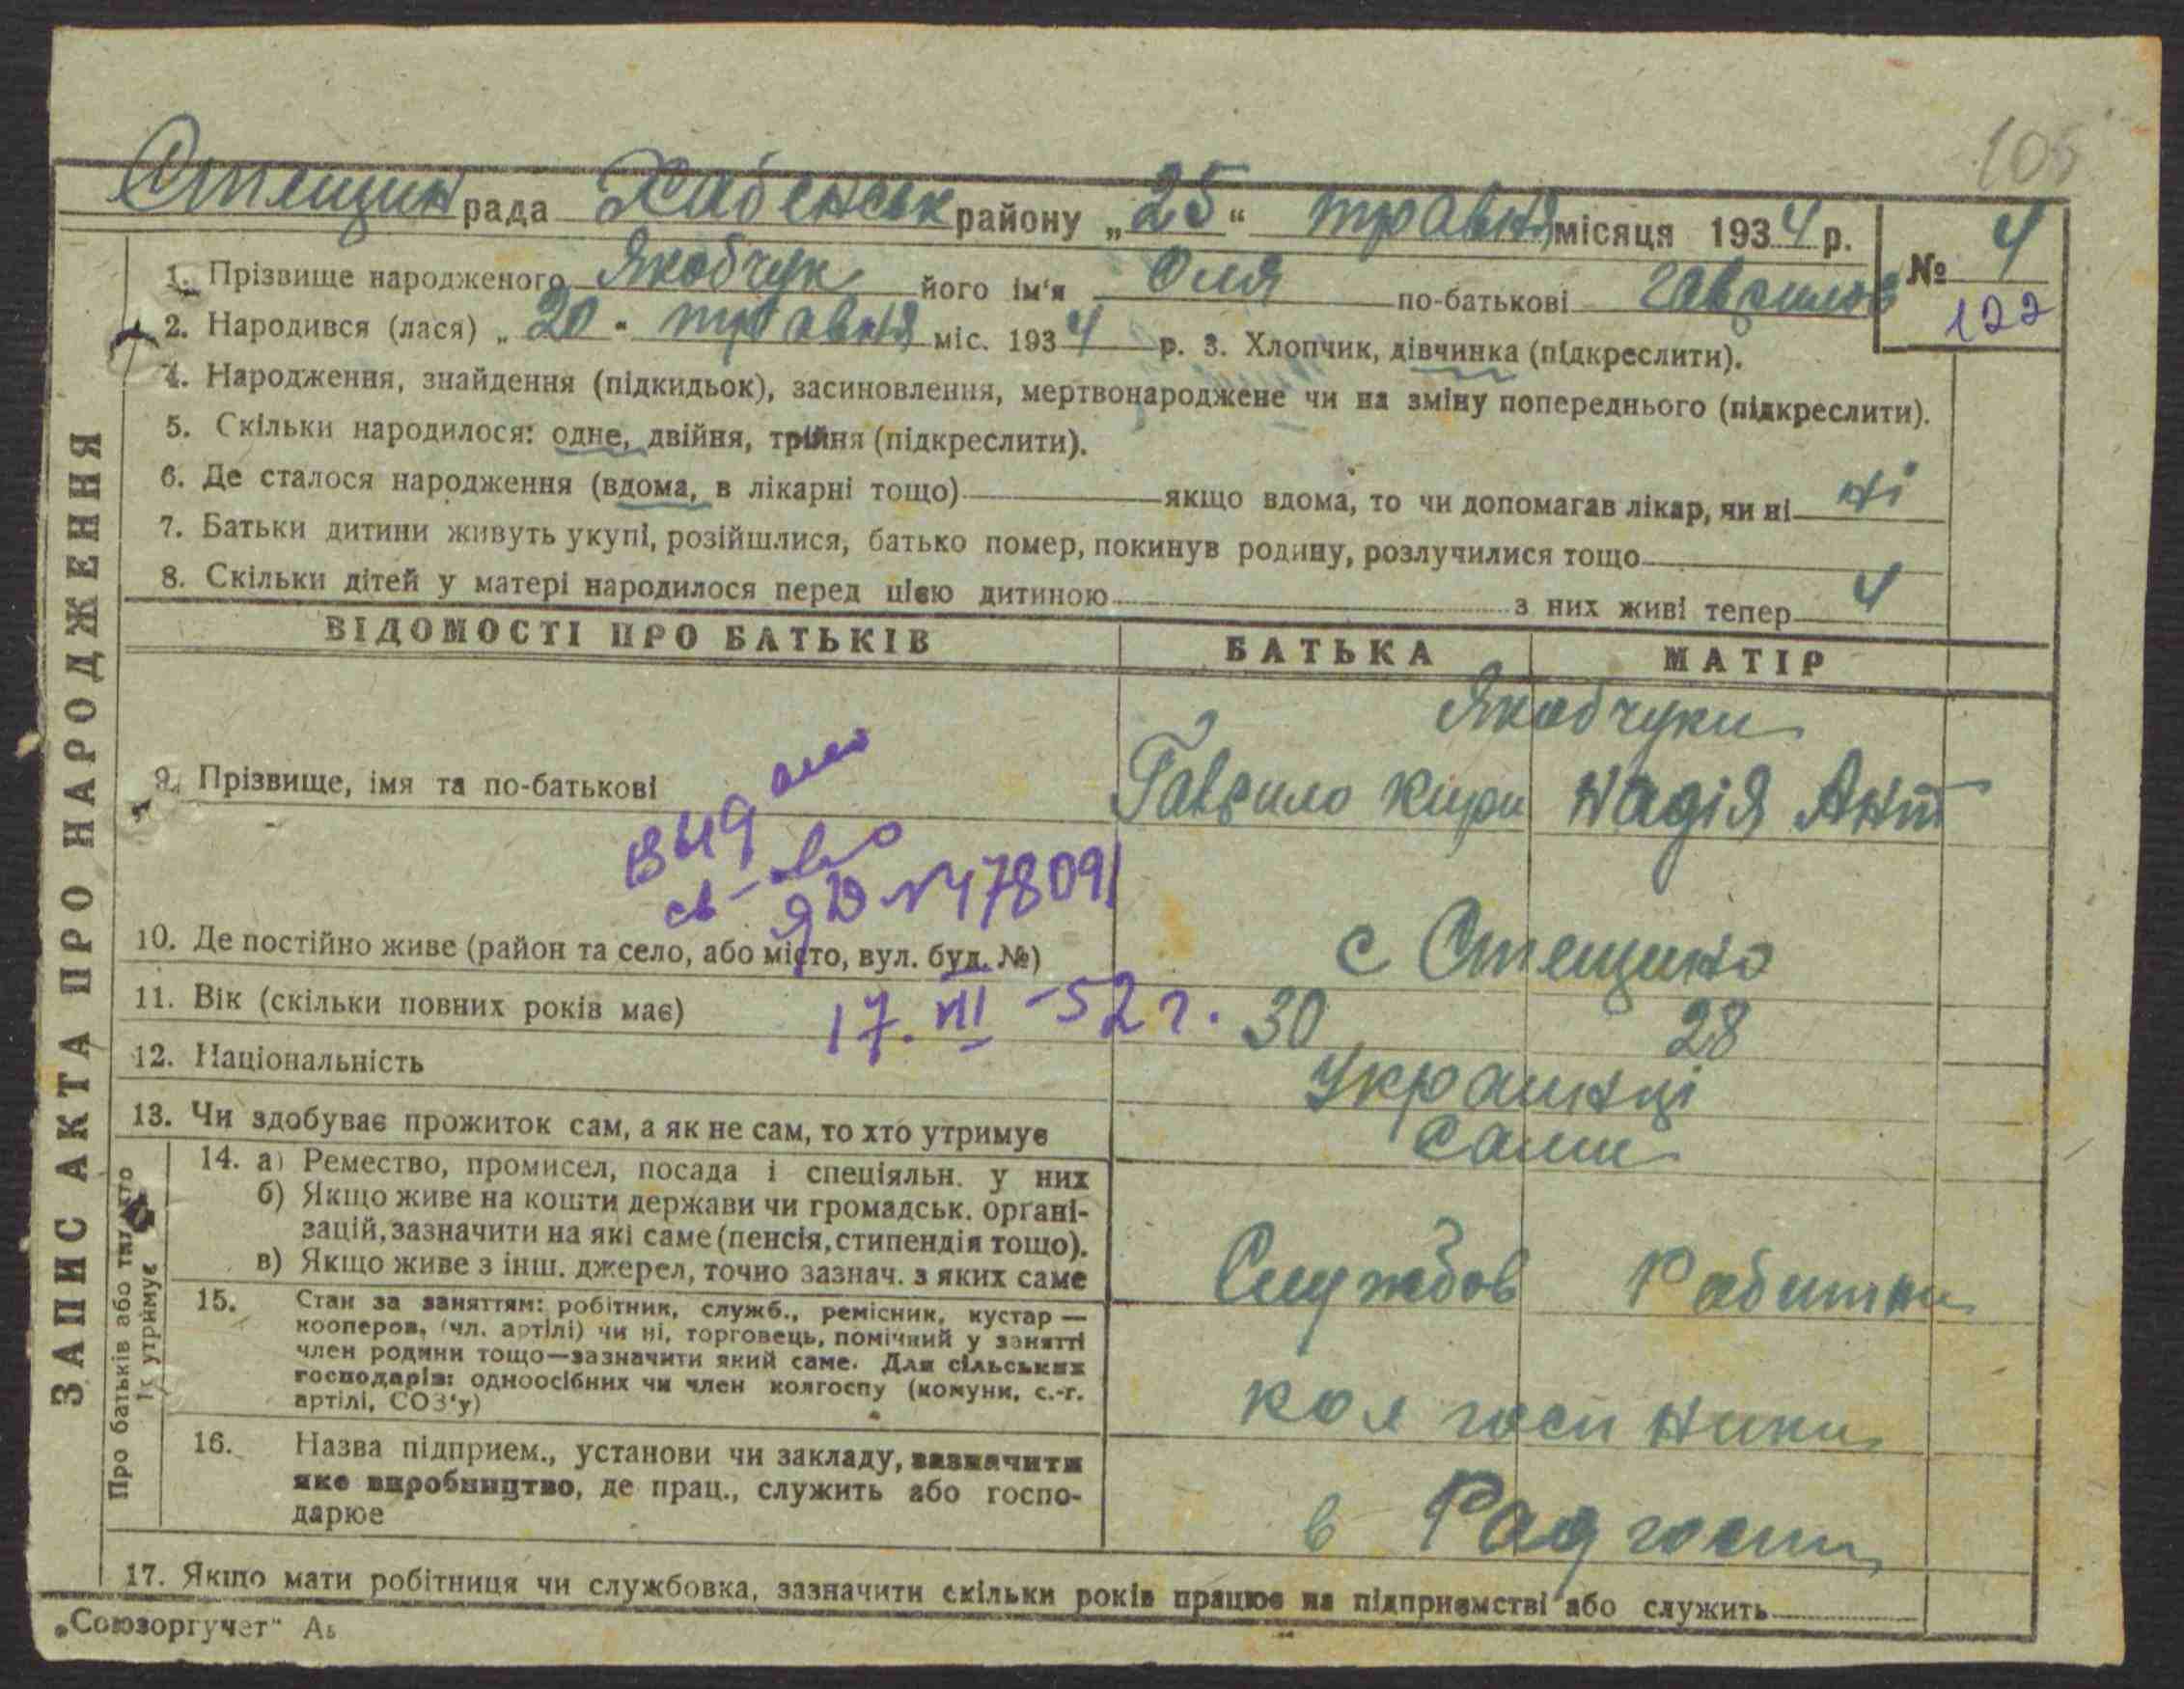 105
Стещин рада Хабенськ району „25“ травня місяця 1934 р.
№ 4
122
1. Прізвище народженого Якобчук його ім'я Оля по-батькові Гаврилов
2. Народився (лася) „20" травня міс. 1934 р. 3. Хлопчик, дівчинка (підкреслити).
4. Народження, знайдення (підкидьок), засиновлення, мертвонароджене чи на зміну попереднього (підкреслити).
5. Скільки народилося: одне, двійня, трійня (підкреслити).
6. Де сталося народження (вдома, в лікарні тощо) якщо вдома, то чи допомагав лікар, чи ні ні
7. Батьки дитини живуть укупі, розійшлися, батько помер, покинув родину, розлучилися тощо
8. Скільки дітей у матері народилося перед цією дитиною з них живі тепер 4
ВІДОМОСТІ ПРО БАТЬКІВ БАТЬКА МАТІР
Якобчуки
9. Прізвище, імя та по-батькові Гаврило Кири Надія Ант
св-во
ЯЮ № 478091
10. Де постійно живе (район та село, або місто, вул. буд. №) с Стещино
11. Вік (скільки повних років має) 30 28
17. XII -52 г.
12. Національність Украинці
13. Чи здобуває прожиток сам, а як не сам, то хто утримує сами
14. а) Ремество, промисел, посада і спеціяльн. у них
б) Якщо живе на кошти держави чи громадськ. органі-
зацій, зазначити на які саме (пенсія, стипендія тощо).
в) Якщо живе з інш. джерел, точно зазнач. з яких саме
Службов Робитни
15. Стан за заняттям: робітник, служб., ремісник, кустар —
кооперов, (чл. артілі) чи ні, торговець, помічний у занятті
член родини тощо—зазначити який саме. Для сільських
господарів: одноосібних чи член колгоспу (комуни, с.-г.
артілі, СОЗ'у)
колгоспники
16. Назва підприєм., установи чи закладу, зазначити
яке виробництво, де прац., служить або госпо-
дарює
в Радгоспи
17. Якщо мати робітниця чи службовка, зазначити скільки років працює на підприємстві або служить
„Союзоргучет"
ЗАПИС АКТА ПРО НАРОДЖЕННЯ
Про батьків або тих, хто
їх утримує